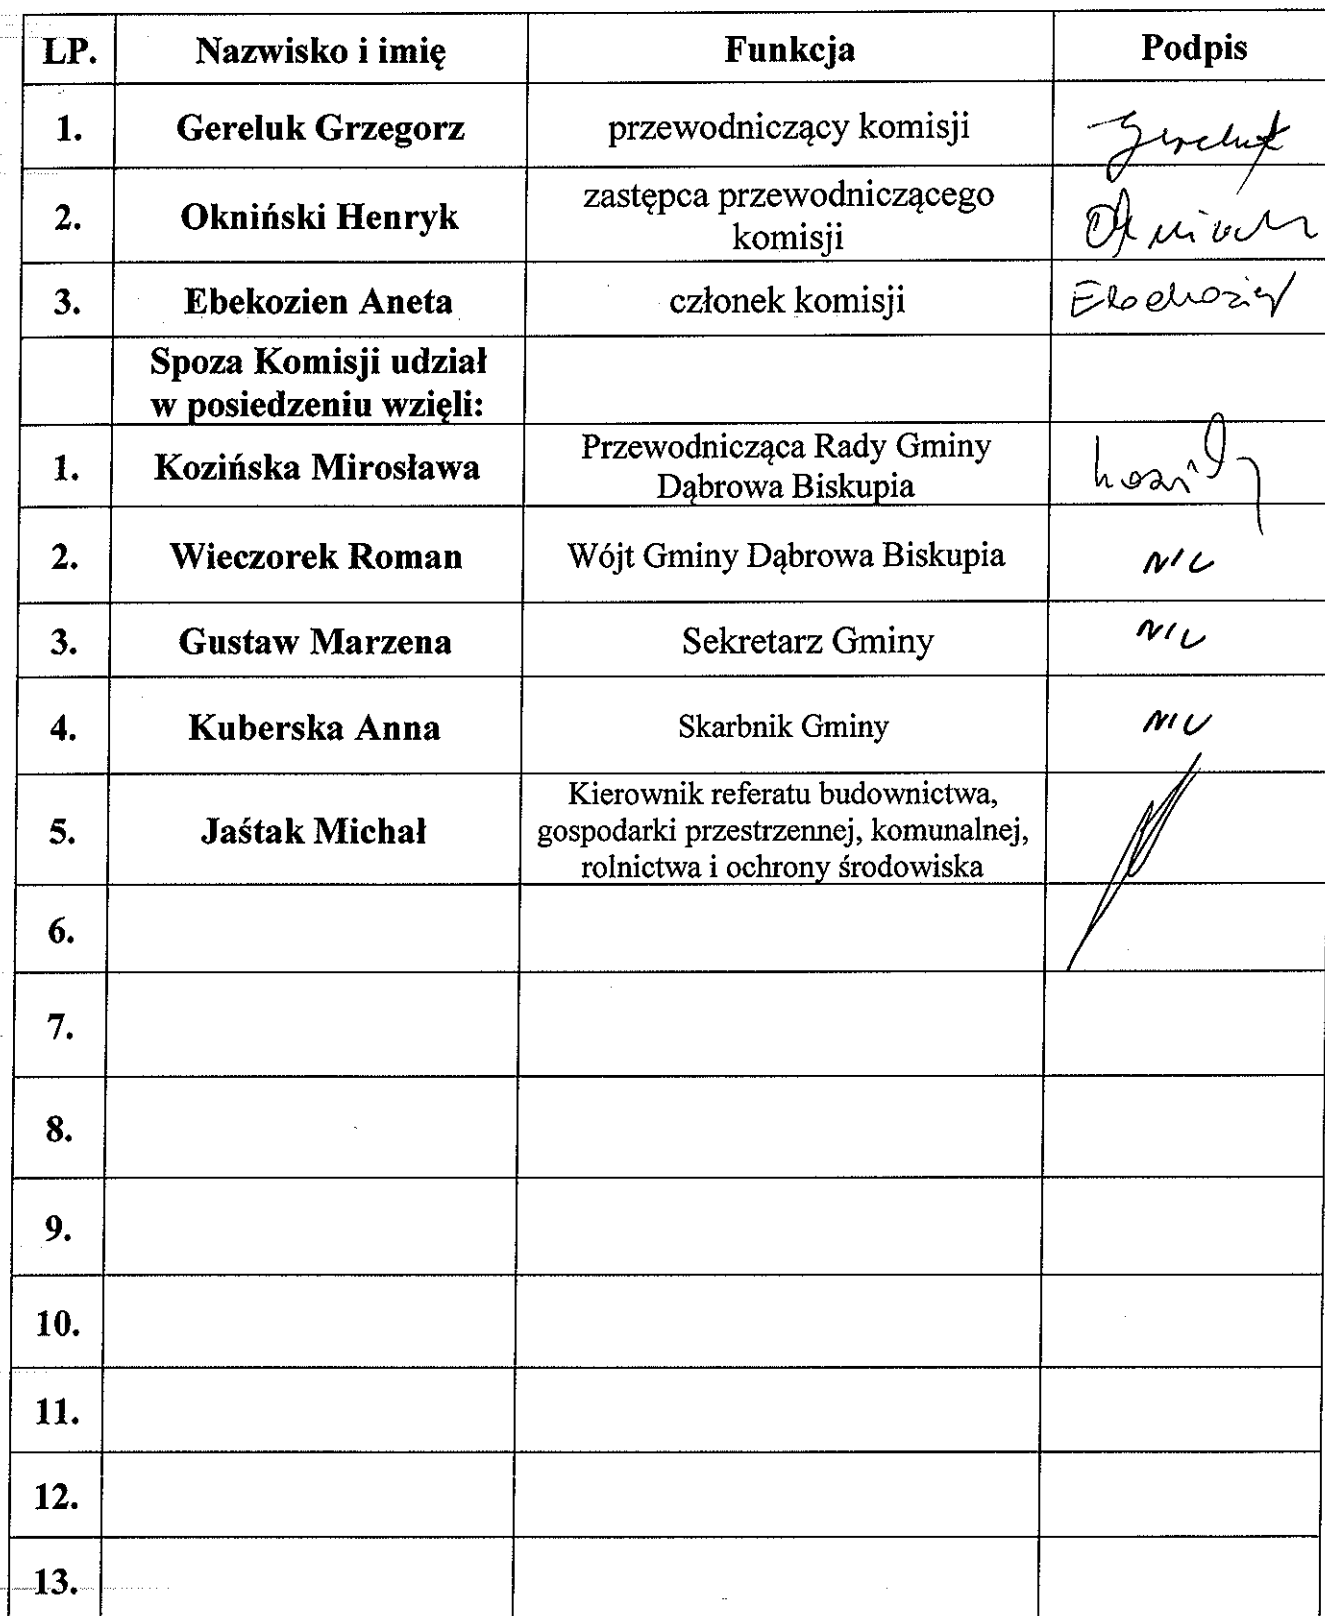 LP. Nazwisko i imię Funkcja Podpis
1. Gereluk Grzegorz przewodniczący komisji Gereluk
2. Okniński Henryk zastępca przewodniczącego
komisji
3. Ebekozien Aneta członek komisji
Spoza Komisji udział
w posiedzeniu wzięli:
1. Kozińska Mirosława Przewodnicząca Rady Gminy
Dąbrowa Biskupia
2. Wieczorek Roman Wójt Gminy Dąbrowa Biskupia
3. Gustaw Marzena Sekretarz Gminy
4. Kuberska Anna Skarbnik Gminy
5. Jaśtak Michał Kierownik referatu budownictwa,
gospodarki przestrzennej, komunalnej,
rolnictwa i ochrony środowiska
6.
7.
8.
9.
10.
11.
12.
13.